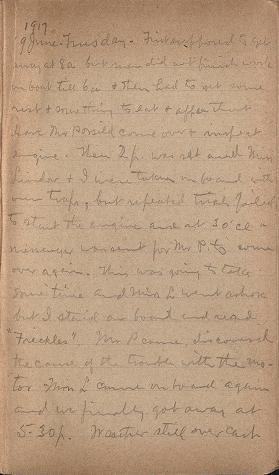 1917.
9 June. Tuesday. First supposed to get
away at 8a but men did not finish work
on boat till 6a & then had to get some
rest & something to eat & after that
have Mr Porsild come over & inspect
engine. Then 2 p. was set and Miss
& I were taken on board with
our traps, but repeated trials failed
to start the engine and at 3 o'cl a
messenger was sent for Mr P. to come
over again. This was going to take
some time and Miss L went ashore
but I staid on board and read
"Freckles". Mr P came, discovered
the cause of the trouble with the mo-
tor. Miss L came on board again
and we finally got away at
5-30 p. Weather still over cast